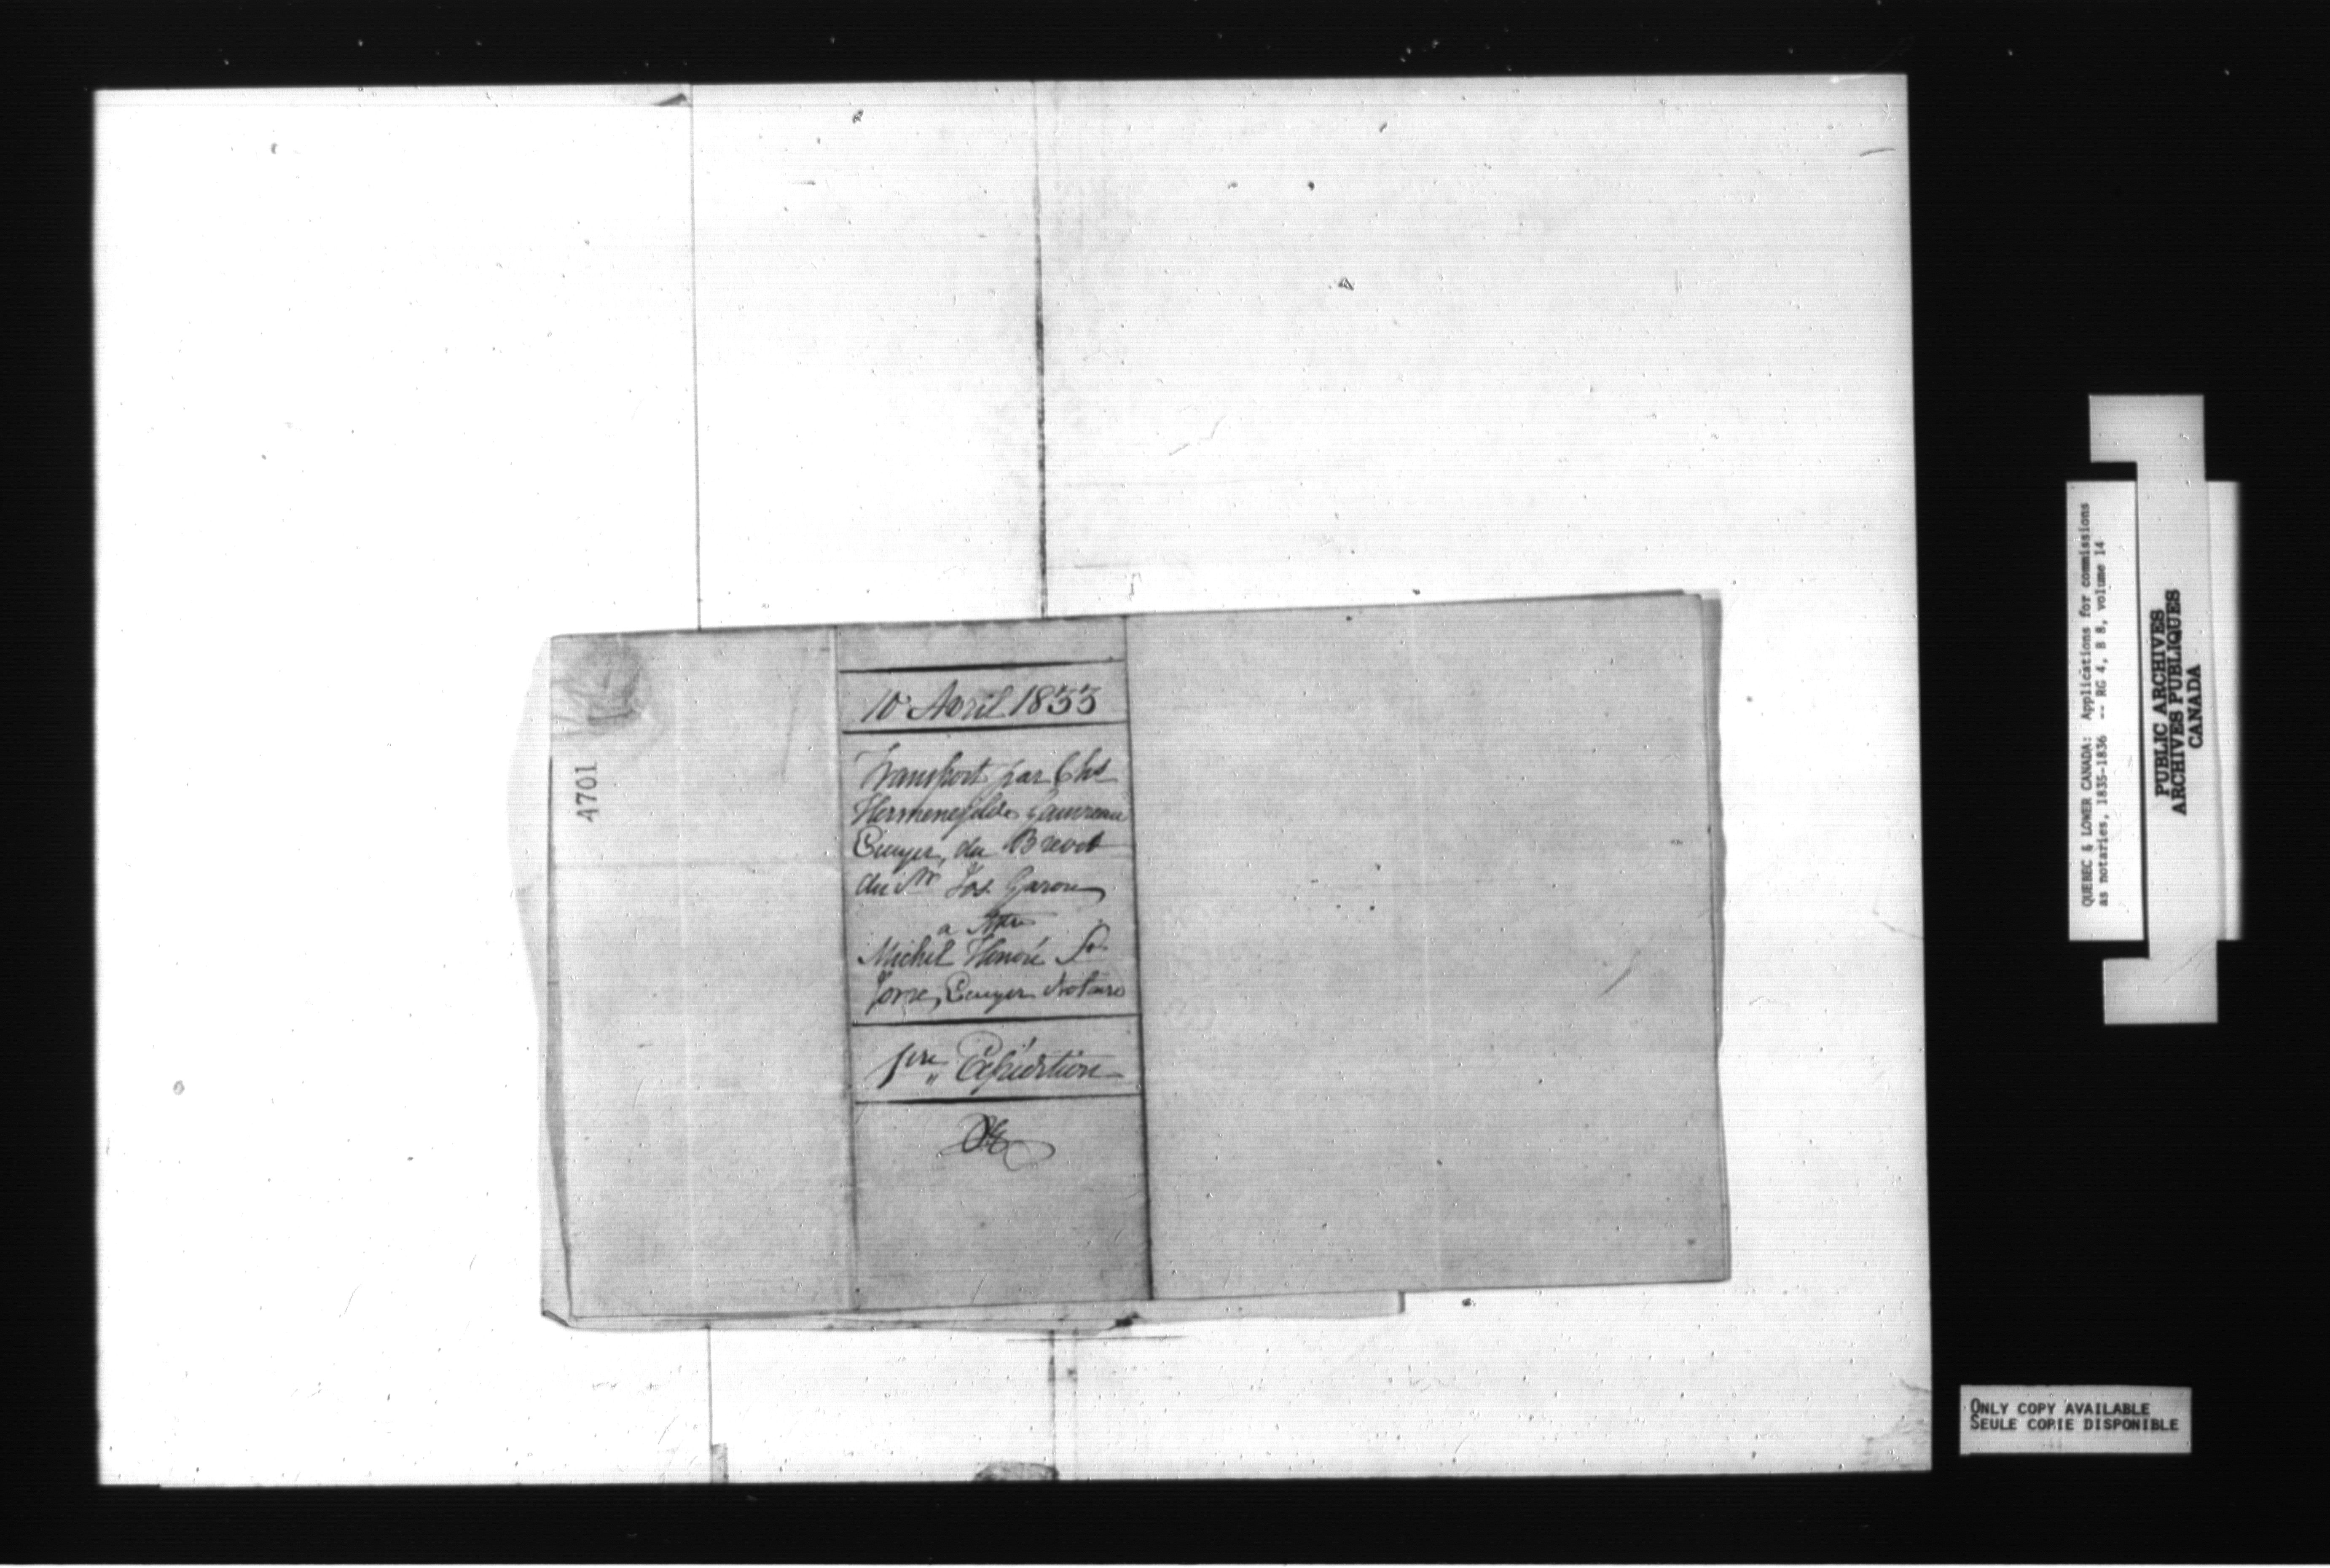 10 Avril 1833
Transport par Chs
Hermenegilde Gauvreau
Ecuyer, du Brevet
du Sr Jos. Garon
a Mtre
Michel Honoré
Jorre, Ecuyer Notaire
1ère Expédition
4701
QUEBEC & LOWER CANADA: Applications for commissions
as notaries, 1835-1836 -- RG 4, B 8, volume 14
PUBLIC ARCHIVES
ARCHIVES PUBLIQUES
CANADA
ONLY COPY AVAILABLE
SEULE COPIE DISPONIBLE